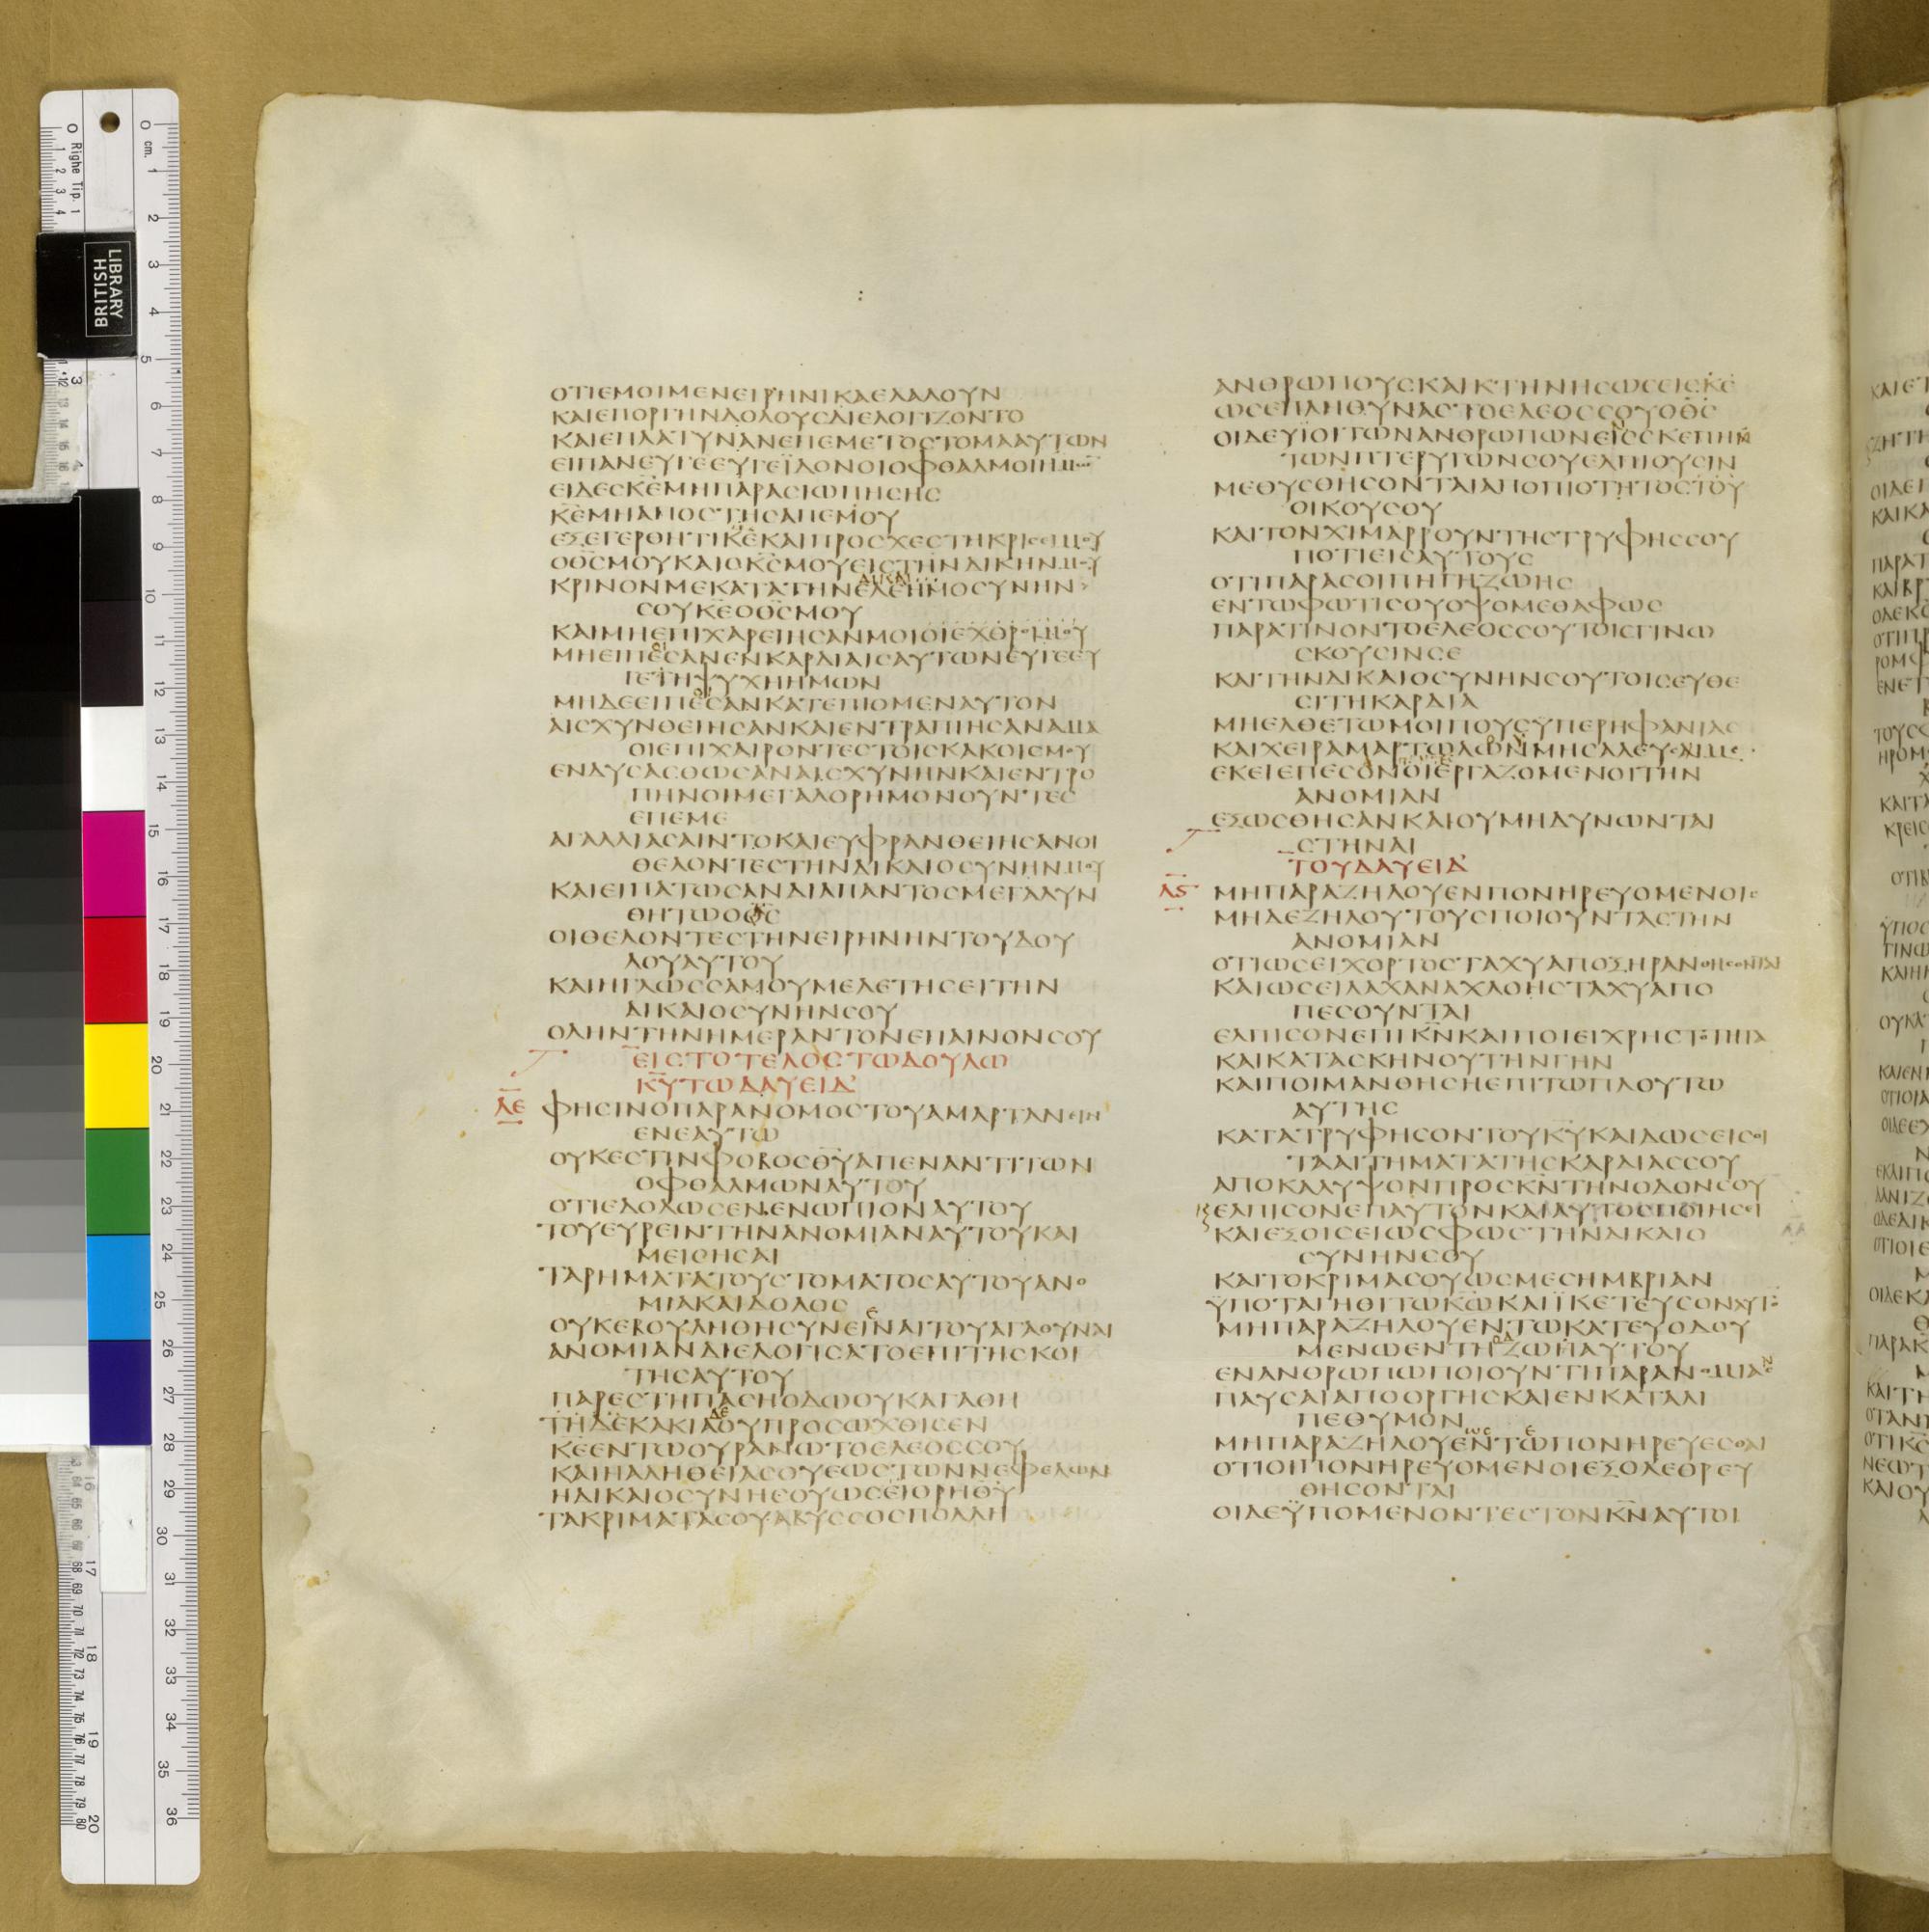 ΟΤΙΕΜΟΙΜΕΝΕΙΡΗΝΙΚΑΕΛΑΛΟΥΝ
ΚΑΙΕΠΟΡΓΗΝΔΟΛΟΥΣΔΙΕΛΟΓΙΖΟΝΤΟ
ΚΑΙΕΠΛΑΤΥΝΑΝΕΠΕΜΕΤΟΣΤΟΜΑΑΥΤΩΝ
ΕΙΠΑΝΕΥΓΕΕΥΓΕΪΔΟΝΟΙΟΦΘΑΛΜΟΙΗΜΩ̅
ΕΙΔΕΣΚ̅Ε̅ΜΗΠΑΡΑΣΙΩΠΗΣΗΣ
Κ̅Ε̅ΜΗΑΠΟΣΤΗΣΑΠΕΜΟΥ
ΕΞΕΓΕΡΘΗΤΙΚ̅Ε̅ΚΑΙΠΡΟΣΧΕΣΤΗΚΡΙΣΙΜΟΥ
ΟΘ̅Σ̅ΜΟΥΚΑΙΟΚ̅Σ̅ΜΟΥΕΙΣΤΗΝΔΙΚΗΝΜΟΥ
ΚΡΙΝΟΝΜΕΚΑΤΑΤΗΝΕΛΕΗΜΟΣΥΝΗΝ
ΣΟΥΚ̅Ε̅ΟΘ̅Σ̅ΜΟΥ
ΚΑΙΜΗΕΠΙΧΑΡΕΙΗΣΑΝΜΟΙΟΙΕΧΘΡΟΙΜΟΥ
ΜΗΕΙΠΕΣΑΝΕΝΚΑΡΔΙΑΙΣΑΥΤΩΝΕΥΓΕΕΥ
ΓΕΤΗΨΥΧΗΗΜΩΝ
ΜΗΔΕΕΙΠΕΣΑΝΚΑΤΕΠΙΟΜΕΝΑΥΤΟΝ
ΑΙΣΧΥΝΘΕΙΗΣΑΝΚΑΙΕΝΤΡΑΠΙΗΣΑΝΑΜΑ
ΟΙΕΠΙΧΑΙΡΟΝΤΕΣΤΟΙΣΚΑΚΟΙΣΜΟΥ
ΕΝΔΥΣΑΣΘΩΣΑΝΑΙΣΧΥΝΗΝΚΑΙΕΝΤΡΟ
ΠΗΝΟΙΜΕΓΑΛΟΡΗΜΟΝΟΥΝΤΕΣ
ΕΠΕΜΕ
ΑΓΑΛΛΙΑΣΑΙΝΤΟΚΑΙΕΥΦΡΑΝΘΕΙΗΣΑΝΟΙ
ΘΕΛΟΝΤΕΣΤΗΝΔΙΚΑΙΟΣΥΝΗΝΜΟΥ
ΚΑΙΕΙΠΑΤΩΣΑΝΔΙΑΠΑΝΤΟΣΜΕΓΑΛΥΝ
ΘΗΤΩΟΘ̅Σ̅
ΟΙΘΕΛΟΝΤΕΣΤΗΝΕΙΡΗΝΗΝΤΟΥΔΟΥ
ΛΟΥΑΥΤΟΥ
ΚΑΙΗΓΛΩΣΣΑΜΟΥΜΕΛΕΤΗΣΕΙΤΗΝ
ΔΙΚΑΙΟΣΥΝΗΝΣΟΥ
ΟΛΗΝΤΗΝΗΜΕΡΑΝΤΟΝΕΠΑΙΝΟΝΣΟΥ
ΕΙΣΤΟΤΕΛΟΣΤΩΔΟΥΛΩ
Κ̅Υ̅ΤΩΔΑΥΕΙΔ
ΛΕ ΦΗΣΙΝΟΠΑΡΑΝΟΜΟΣΤΟΥΑΜΑΡΤΑΝΕΙΝ
ΕΝΕΑΥΤΩ
ΟΥΚΕΣΤΙΝΦΟΒΟΣΘ̅Υ̅ΑΠΕΝΑΝΤΙΤΩΝ
ΟΦΘΑΛΜΩΝΑΥΤΟΥ
ΟΤΙΕΔΟΛΩΣΕΝΕΝΩΠΙΟΝΑΥΤΟΥ
ΤΟΥΕΥΡΕΙΝΤΗΝΑΝΟΜΙΑΝΑΥΤΟΥΚΑΙ
ΜΕΙΣΗΣΑΙ
ΤΑΡΗΜΑΤΑΤΟΥΣΤΟΜΑΤΟΣΑΥΤΟΥΑΝΟ
ΜΙΑΚΑΙΔΟΛΟΣ
ΟΥΚΕΒΟΥΛΗΘΗΣΥΝΕΙΝΑΙΤΟΥΑΓΑΘΥΝΑΙ
ΑΝΟΜΙΑΝΔΙΕΛΟΓΙΣΑΤΟΕΠΙΤΗΣΚΟΙ
ΤΗΣΑΥΤΟΥ
ΠΑΡΕΣΤΗΠΑΣΗΟΔΩΟΥΚΑΓΑΘΗ
ΤΗΔΕΚΑΚΙΑΟΥΠΡΟΣΩΧΘΙΣΕΝ
Κ̅Ε̅ΕΝΤΩΟΥΡΑΝΩΤΟΕΛΕΟΣΣΟΥ
ΚΑΙΗΑΛΗΘΕΙΑΣΟΥΕΩΣΤΩΝΝΕΦΕΛΩΝ
ΗΔΙΚΑΙΟΣΥΝΗΣΟΥΩΣΕΙΟΡΗΘ̅Υ̅
ΤΑΚΡΙΜΑΤΑΣΟΥΑΒΥΣΣΟΣΠΟΛΛΗ
ΑΝΘΡΩΠΟΥΣΚΑΙΚΤΗΝΗΣΩΣΕΙΣΚ̅Ε̅
ΩΣΕΠΛΗΘΥΝΑΣΤΟΕΛΕΟΣΣΟΥΟΘ̅Σ̅
ΟΙΔΕΥΪΟΙΤΩΝΑΝΘΡΩΠΩΝΕΙΣΣΚΕΠΗΝ
ΤΩΝΠΤΕΡΥΓΩΝΣΟΥΕΛΠΙΟΥΣΙΝ
ΜΕΘΥΣΘΗΣΟΝΤΑΙΑΠΟΠΙΟΤΗΤΟΣΤΟΥ
ΟΙΚΟΥΣΟΥ
ΚΑΙΤΟΝΧΙΜΑΡΡΟΥΝΤΗΣΤΡΥΦΗΣΣΟΥ
ΠΟΤΙΕΙΣΑΥΤΟΥΣ
ΟΤΙΠΑΡΑΣΟΙΠΗΓΗΖΩΗΣ
ΕΝΤΩΦΩΤΙΣΟΥΟΨΟΜΕΘΑΦΩΣ
ΠΑΡΑΤΙΝΟΝΤΟΕΛΕΟΣΣΟΥΤΟΙΣΓΙΝΩ
ΣΚΟΥΣΙΝΣΕ
ΚΑΙΤΗΝΔΙΚΑΙΟΣΥΝΗΝΣΟΥΤΟΙΣΕΥΘΕ
ΣΙΤΗΚΑΡΔΙΑ
ΜΗΕΛΘΕΤΩΜΟΙΠΟΥΣΫΠΕΡΗΦΑΝΙΑΣ
ΚΑΙΧΕΙΡΑΜΑΡΤΩΛΩΝΜΗΣΑΛΕΥΣΑΙΜΕ
ΕΚΕΙΕΠΕΣΟΝΟΙΕΡΓΑΖΟΜΕΝΟΙΤΗΝ
ΑΝΟΜΙΑΝ
ΕΞΩΣΘΗΣΑΝΚΑΙΟΥΜΗΔΥΝΩΝΤΑΙ
ΣΤΗΝΑΙ
ΤΟΥΔΑΥΕΙΔ
ΛϚ ΜΗΠΑΡΑΖΗΛΟΥΕΝΠΟΝΗΡΕΥΟΜΕΝΟΙΣ
ΜΗΔΕΖΗΛΟΥΤΟΥΣΠΟΙΟΥΝΤΑΣΤΗΝ
ΑΝΟΜΙΑΝ
ΟΤΙΩΣΕΙΧΟΡΤΟΣΤΑΧΥΑΠΟΞΗΡΑΝΘΗΣΟΝΤΑΙ
ΚΑΙΩΣΕΙΛΑΧΑΝΑΧΛΟΗΣΤΑΧΥΑΠΟ
ΠΕΣΟΥΝΤΑΙ
ΕΛΠΙΣΟΝΕΠΙΚ̅Ν̅ΚΑΙΠΟΙΕΙΧΡΗΣΤΟΤΗΤΑ
ΚΑΙΚΑΤΑΣΚΗΝΟΥΤΗΝΓΗΝ
ΚΑΙΠΟΙΜΑΝΘΗΣΗΕΠΙΤΩΠΛΟΥΤΩ
ΑΥΤΗΣ
ΚΑΤΑΤΡΥΦΗΣΟΝΤΟΥΚ̅Υ̅ΚΑΙΔΩΣΕΙΣΟΙ
ΤΑΑΙΤΗΜΑΤΑΤΗΣΚΑΡΔΙΑΣΣΟΥ
ΑΠΟΚΑΛΥΨΟΝΠΡΟΣΚ̅Ν̅ΤΗΝΟΔΟΝΣΟΥ
ΕΛΠΙΣΟΝΕΠΑΥΤΟΝΚΑΙΑΥΤΟΣΠΟΙΗΣΕΙ
ΚΑΙΕΞΟΙΣΕΙΩΣΦΩΣΤΗΝΔΙΚΑΙΟ
ΣΥΝΗΝΣΟΥ
ΚΑΙΤΟΚΡΙΜΑΣΟΥΩΣΜΕΣΗΜΒΡΙΑΝ
ΫΠΟΤΑΓΗΘΙΤΩΚ̅Ω̅ΚΑΙΪΚΕΤΕΥΣΟΝΑΥΤΟ
ΜΗΠΑΡΑΖΗΛΟΥΕΝΤΩΚΑΤΕΥΟΔΟΥ
ΜΕΝΩΕΝΤΗΖΩΗΑΥΤΟΥ
ΕΝΑΝΘΡΩΠΩΠΟΙΟΥΝΤΙΠΑΡΑΝΟΜΙΑΣ
ΠΑΥΣΑΙΑΠΟΟΡΓΗΣΚΑΙΕΝΚΑΤΑΛΙ
ΠΕΘΥΜΟΝ
ΜΗΠΑΡΑΖΗΛΟΥΕΝΤΩΠΟΝΗΡΕΥΕΣΘΑΙ
ΟΤΙΟΙΠΟΝΗΡΕΥΟΜΕΝΟΙΕΞΟΛΕΘΡΕΥ
ΘΗΣΟΝΤΑΙ
ΟΙΔΕΫΠΟΜΕΝΟΝΤΕΣΤΟΝΚ̅Ν̅ΑΥΤΟΙ
BRITISH
LIBRARY